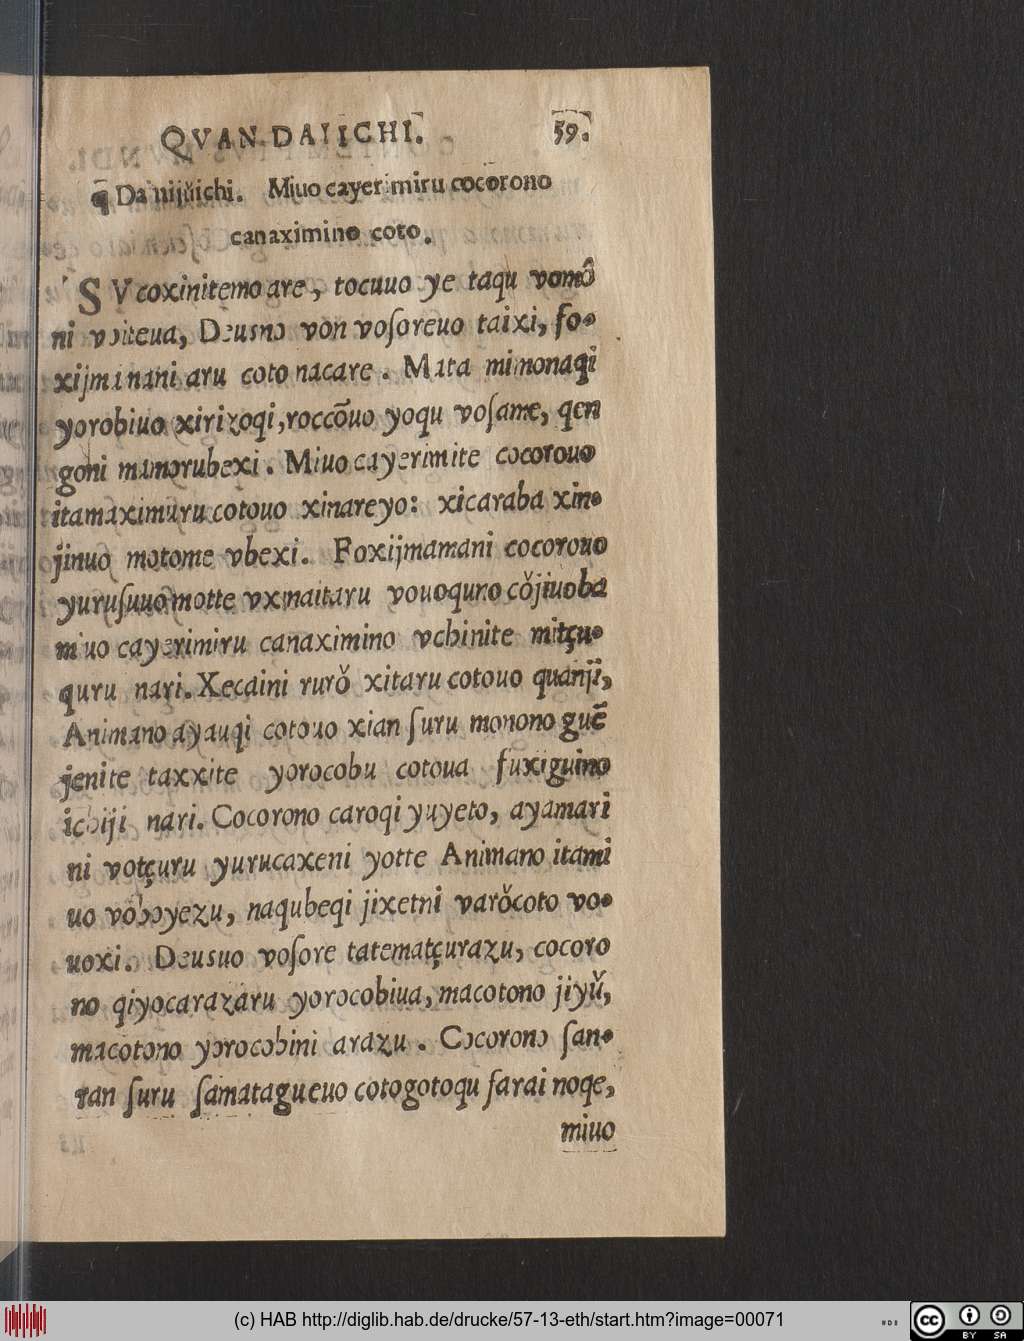 QVAN DAIICHI. 59.
¶ Dai nijŭichi. Miuo cayerimiru cocorono
canaximino coto.
SVcoxinitemo are, tocuuo ye taqu vomô
ni voiteua, Deusno von voſoreuo taixi, fo-
xijmanani aru coto nacare. Mata mimonaqi
yorobiuo xirizoqi, roccõuo yoqu voſame, qen
goni mamorubexi. Miuo cayerimite cocorouo
itamaximuru cotouo xinareyo: xicaraba xin-
jinuo motome vbexi. Foxijmamani cocorouo
yuruſuuo motte vxinaitaru vouoquno cǒjiuoba
miuo cayerimiru canaximino vchinite mitçu-
quru nari. Xecaini rurŏ xitaru cotouo quanji,
Animano ayauqi cotouo xian ſuru monono guẽ
jenite taxxite yorocobu cotoua fuxiguino
ichiji nari. Cocorono caroqi yuyeto, ayamari
ni votçuru yurucaxeni yotte Animano itami
uo vôboyezu, naqubeqi jixetni varŏcoto vo-
uoxi. Deusuo voſore tatematçurazu, cocoro
no qiyocarazaru yorocobiua, macotono jiyŭ,
macotono yorocobini arazu. Cocorono ſan-
ran ſuru ſamatagueuo cotogotoqu farai noqe,
miuo
(c) HAB http://diglib.hab.de/drucke/57-13-eth/start.htm?image=00071
cc BY SA